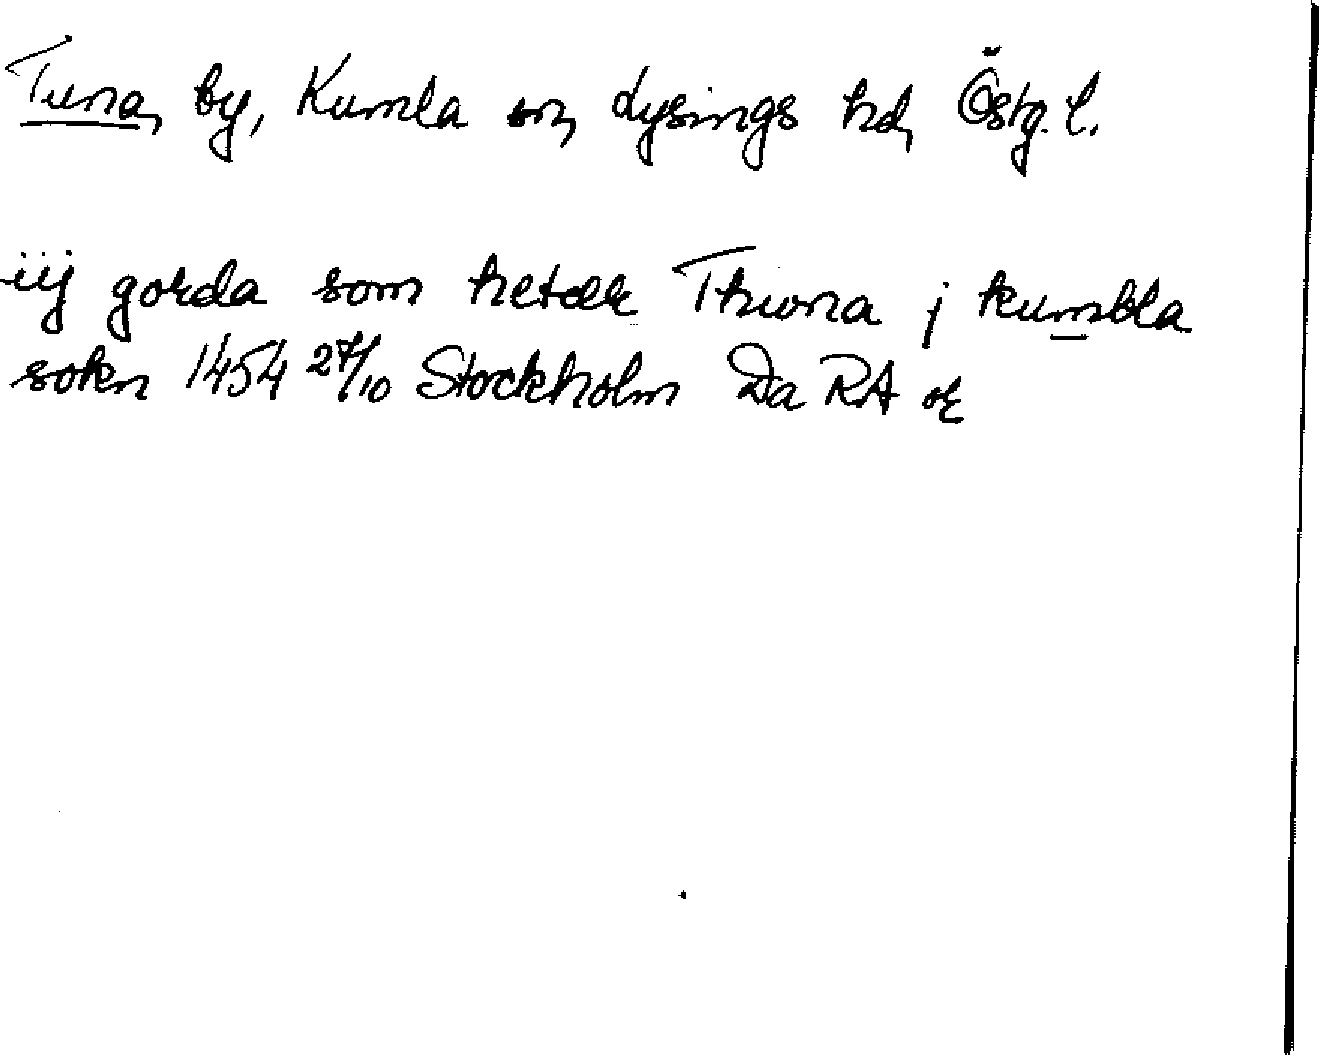 Tuna, by, Kumla sn, Lysings hd, Östg. l.
iij gorda som hetær Thuna j kumbla
sokn 1454 27/10 Stockholm Da RA or